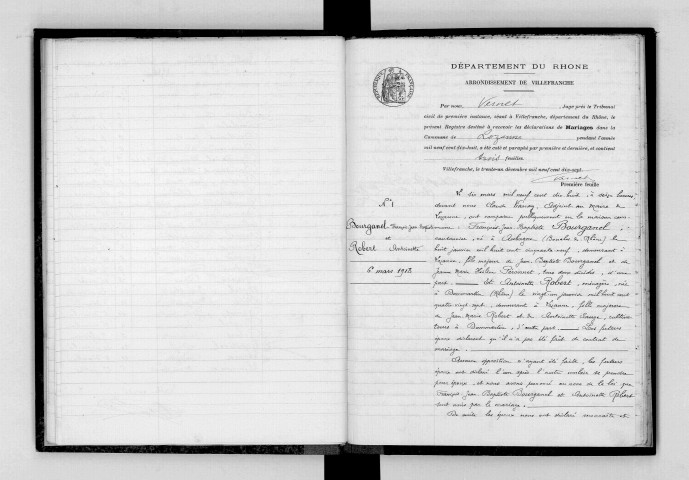 DÉPARTEMENT DU RHONE
ARRONDISSEMENT DE VILLEFRANCHE
Par nous, Vernet, Juge près le Tribunal
civil de première instance, séant à Villefranche, département du Rhône, le
présent Registre destiné à recevoir les déclarations de Mariages dans la
Commune de Lozanne pendant l'année
mil neuf cent dix-huit, a été coté et paraphé par première et dernière, et contient
trois feuilles
Villefranche, le trente-un décembre mil neuf cent dix-sept.
Première feuille
N° 1
Bourganel François Jean Baptiste
et
Robert Antoinette
6 mars 1918
Le six mars mil neuf cent dix huit, à heures
devant nous Claude adjoint au Maire de
Lozanne, ont comparu publiquement en la maison com-
mune : François Jean Baptiste Bourganel,
cantonnier, né à (Bouches du Rhône) le
huit janvier mil huit cent cinquante neuf, demeurant à
Lozanne, fils majeur de Jean Baptiste Bourganel et de
Jeanne Marie tous deux décédés, d'une
part. Et Antoinette Robert, ménagère, née
à Dommartin (Rhône) le vingt un janvier mil huit cent
quatre vingt sept, demeurant à Lozanne, fille majeure
de Jean Marie Robert et de Antoinette cultiva-
teurs à Dommartin, d'autre part. Les futurs
époux déclarent qu'il n'a pas été fait de contrat de
mariage.
Aucune opposition n'ayant été faite, les futurs
époux ont déclaré l'un après l'autre vouloir se prendre
pour époux, et nous avons prononcé au nom de la loi que
François Jean Baptiste Bourganel et Antoinette Robert
sont unis par le mariage.
De suite les époux nous ont déclaré